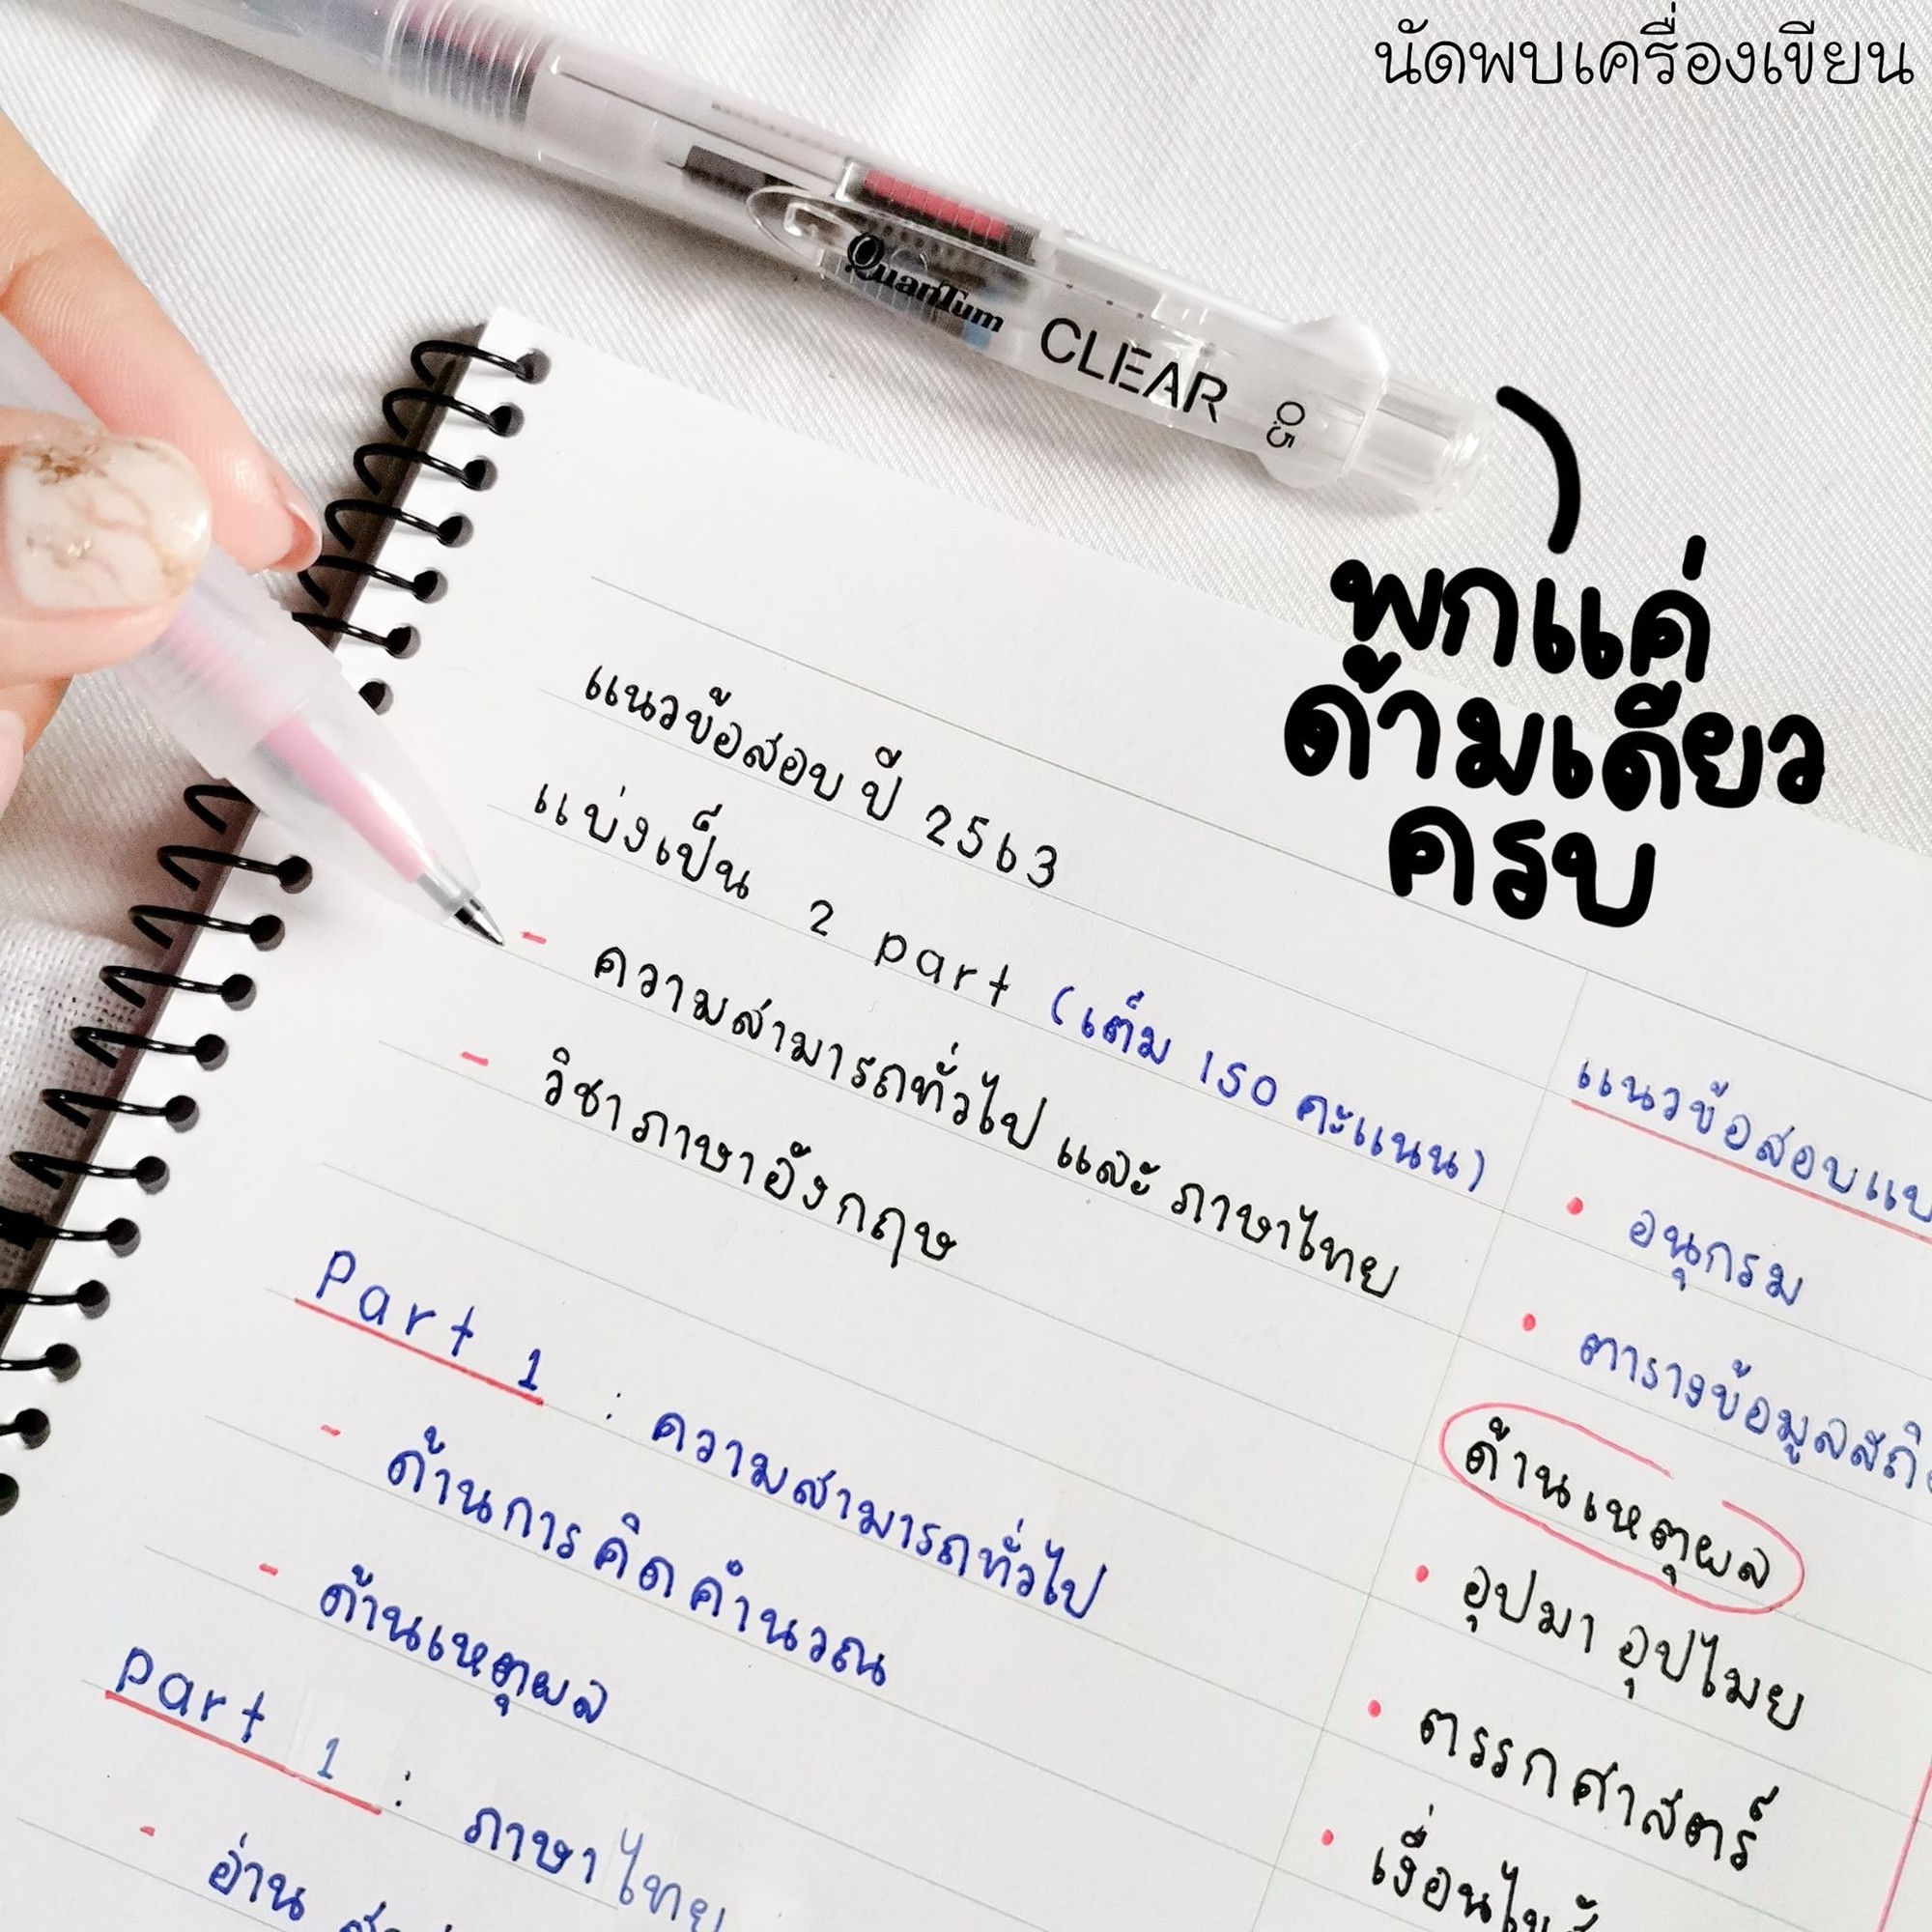 นัดพบเครื่องเขียน
QuanTum CLEAR 0.5
พกแค่
ด้ามเดียว
ครบ
แนวข้อสอบ ปี 2563
แบ่งเป็น 2 part (เต็ม 150 คะแนน)
- ความสามารถทั่วไป และ ภาษาไทย
- วิชาภาษาอังกฤษ
Part 1 : ความสามารถทั่วไป
- ด้านการคิดคำนวณ
- ด้านเหตุผล
Part 1 : ภาษาไทย
- อ่าน
แนวข้อสอบแบ
• อนุกรม
• ตารางข้อมูลสถิ
ด้านเหตุผล
• อุปมา อุปไมย
• ตรรกศาสตร์
• เงื่อนไข